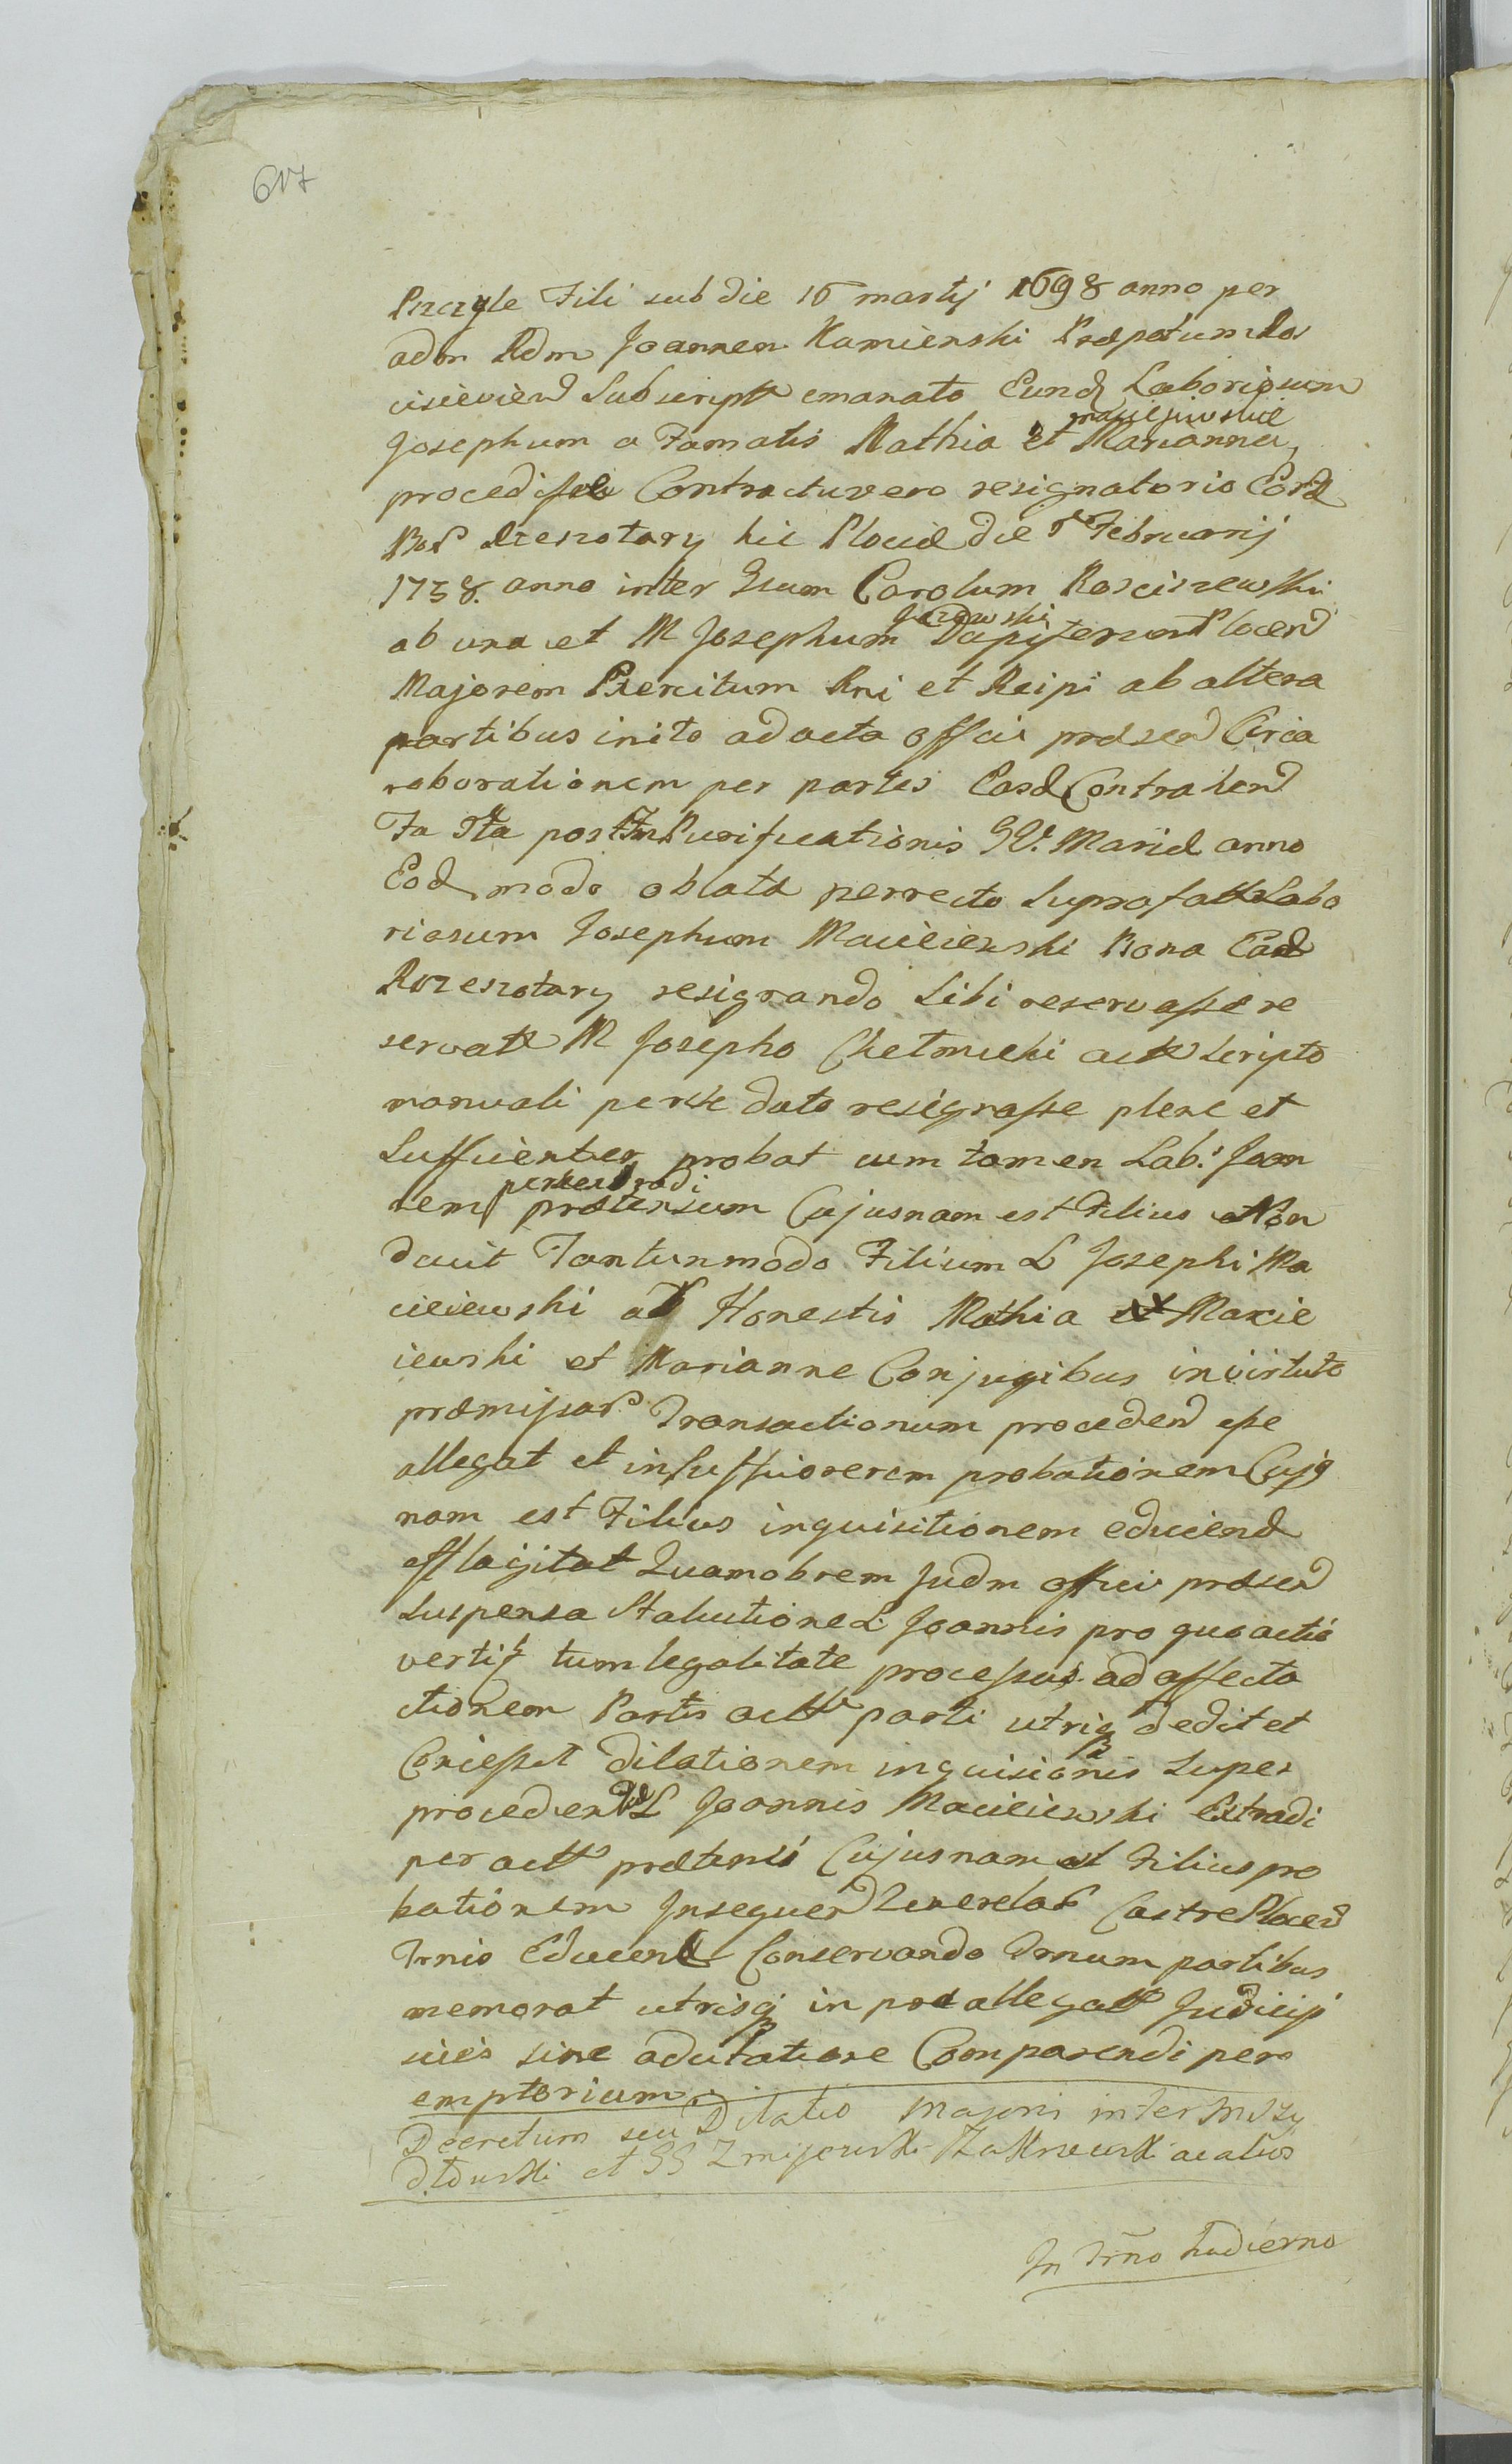 617
sub die 16 martij 1698 anno per
adm Rdm Joannem Kamienski Præpotum Ra
cisievien Subscript emanato Eund Laboriosum
maciejewskie
Josephum a Famatis Mathia et Marianna
procedisse Contractu vero resignatorio Eord
Bor hic Plociæ die Februarij
1738. anno inter Gsum Carolum Rosciszewski
ab una et M Josephum Dapiferum Plocen
Majorem Exercitum Rni et Reipi ab altera
partibus inito ad acta officii præsen Circa
roborationem per partes Easd Contrahen
Fa 5ta post Purificationis B V. Mariæ anno
Eod modo oblatæ perrecto Suprafatt Labo
riosum Josephum Macieiewski Bona Ead
resignando Sibi reservasse re
servatt M Josepho Chełmicki actt Scripto
manuali per se dato resignasse plene et
Sufficienter probat cum tamen Lab: Joan
nem prætensum Cujusnam est Filius Non
docuit Tantummodo Filium L Josephi Ma
cieiewski ab Honestis Mathia Macie
iewski et Marianne Conjugibus in virtute
præmissar Transactionum proceden esse
allegat et in sufficiorerem probationem Cujq
nam est Filius inquisitionem educiend
efflagitat Quamobrem Judm officii præsen
Suspensa Statuitione L Joannis pro quo actio
vertit tum legalitate processus ad affecta
ctionem Partis actt parti utriq dedit et
Concessit dilationem inquisionis super
proceden L Joannis Macieiewski Extradi
per actt prætensi Cujusnam est Filius pro
bationem Insequen Querelar Castre Plocen
Trnis Educend Conservando Trnum partibus
memorat utrisq in præallegatt Judicijs
suis sine adcitatione Comparendi per
emptorium
Decretum seu Dilatio Majoris inter
et GG Zmijewski ac alios
In Trno hodierno